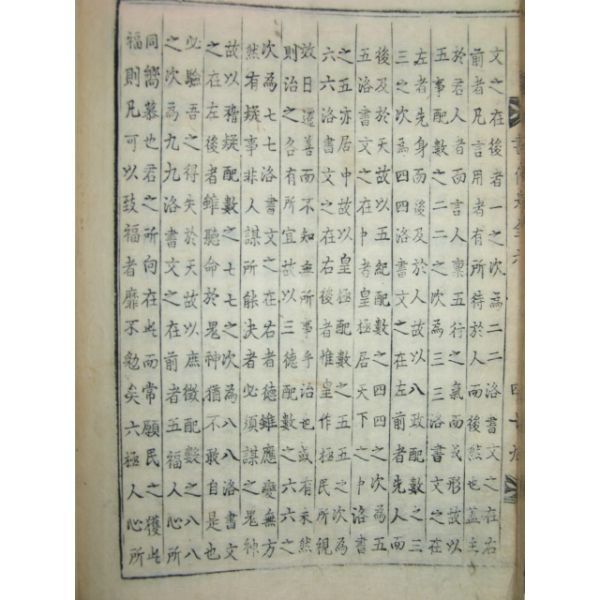 文之在後者一之次為二二洛書文之在右
前者凡言用者有所待於人而後然也蓋主
於君人者而言人稟五行之氣而成形故以
五事配數之二二之次為三三洛書文之在
左者先身而後及於人故以八政配數之三
三之次為四四洛書文之在左前者先人而
後及於天故以五紀配數之四四之次為五
五洛書文之在中者皇極居天下之中洛書
之五亦居中故以皇極配數之五五之次為
六六洛書文之在右後者惟皇作極民所視
效日遷善而不知無所事乎治也或有未然
則治之各有所宜故以三德配數之六六之
次為七七洛書文之在右者德雖應變無方
然有疑事非人謀所能決者必須謀之鬼神
故以稽疑配數之七七之次為八八洛書文
之在左後者雖聽命於鬼神猶不敢自是也
必驗吾之得失於天故以庶徵配數之八八
之次為九九洛書文之在前者五福人心所
同嚮慕也君之所向在此而常願民之獲此
福則凡可以致福者靡不勉矣六極人心所